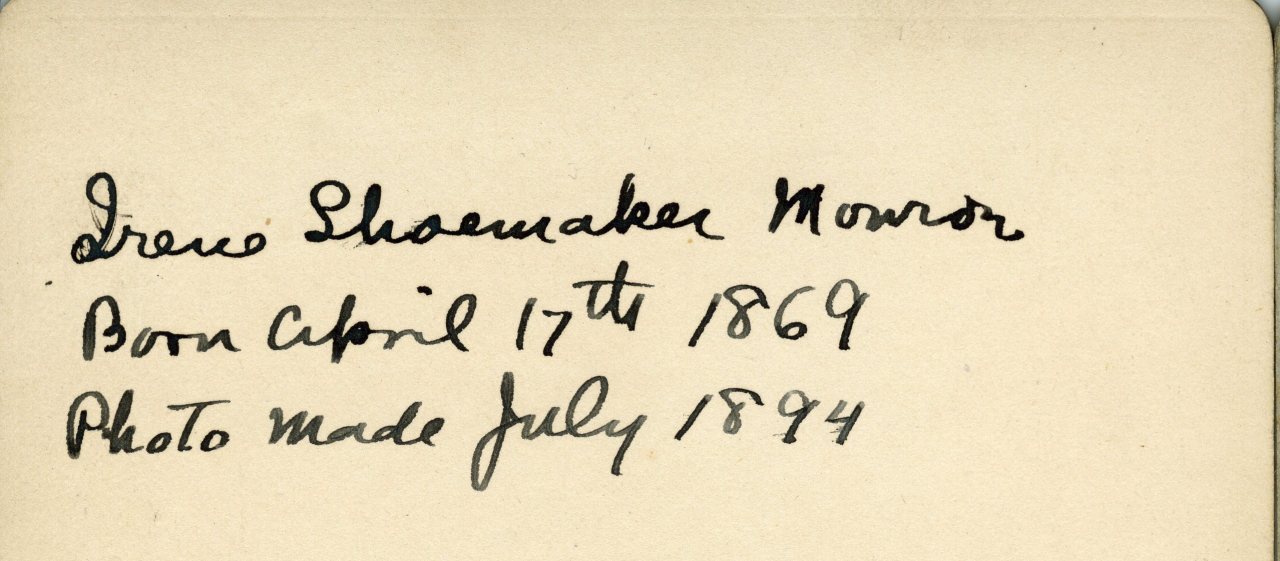 Irene Shoemaker
Born April 17th 1869
Photo made July 1894